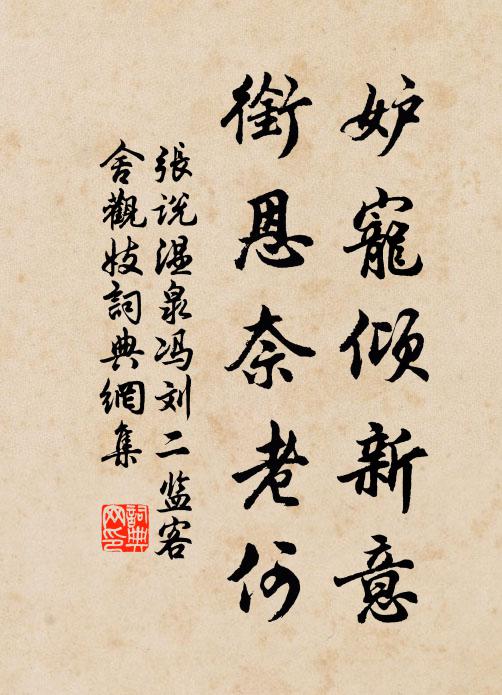 妒寵傾新意
銜恩奈老何
張说温泉冯刘二监客
舍觀妓詞典網集
詞典
网印